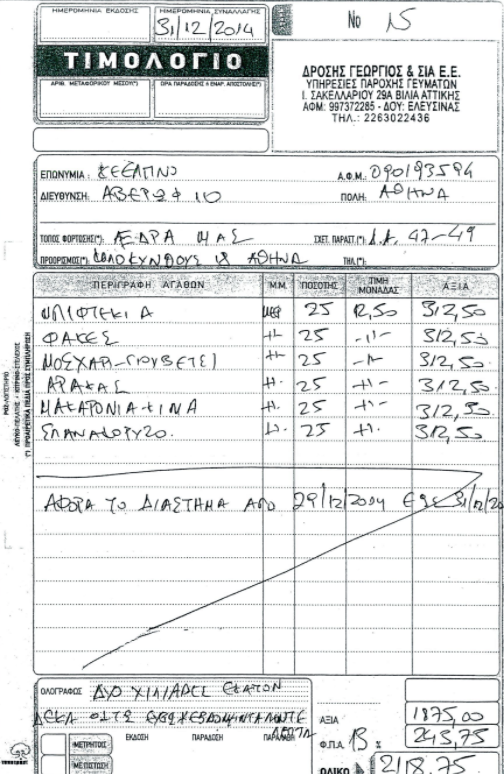 ΗΜΕΡΟΜΗΝΙΑ ΕΚΔΟΣΗΣ ΗΜΕΡΟΜΗΝΙΑ ΣΥΝΑΛΛΑΓΗΣ
31/12/2014
Νο 15
ΤΙΜΟΛΟΓΙΟ
ΑΡΙΘ. ΜΕΤΑΦΟΡΙΚΟΥ ΜΕΣΟΥ(*) ΩΡΑ ΠΑΡΑΔΟΣΗΣ ή ΕΝΑΡ. ΑΠΟΣΤΟΛΗΣ(*)
ΔΡΟΣΗΣ ΓΕΩΡΓΙΟΣ & ΣΙΑ Ε.Ε.
ΥΠΗΡΕΣΙΕΣ ΠΑΡΟΧΗΣ ΓΕΥΜΑΤΩΝ
Ι. ΣΑΚΕΛΛΑΡΙΟΥ 29Α ΒΙΛΙΑ ΑΤΤΙΚΗΣ
ΑΦΜ: 997372285 - ΔΟΥ: ΕΛΕΥΣΙΝΑΣ
ΤΗΛ.: 2263022436
ΕΠΩΝΥΜΙΑ: ΚΕΕΛΠΝΟ Α.Φ.Μ.: 090193594
ΔΙΕΥΘΥΝΣΗ: ΑΒΕΡΩΦ 10 ΠΟΛΗ: ΑΘΗΝΑ
ΤΟΠΟΣ ΦΟΡΤΩΣΗΣ(*): ΕΔΡΑ ΜΑΣ ΣΧΕΤ. ΠΑΡΑΣΤ.(*): Δ.Α. 47-49
ΠΡΟΟΡΙΣΜΟΣ(*): ΚΟΛΟΚΥΝΘΟΥΣ ΑΘΗΝΑ ΤΗΛ.(*):
ΠΕΡΙΓΡΑΦΗ ΑΓΑΘΩΝ Μ.Μ. ΠΟΣΟΤΗΣ ΤΙΜΗ ΜΟΝΑΔΑΣ ΑΞΙΑ
ΜΠΙΦΤΕΚΙΑ ΜΕΡ 25 12,50 312,50
ΦΑΚΕΣ -11- 25 -11- 312,50
ΜΟΣΧΑΡΙ-ΓΙΟΥΒΕΤΣΙ -11- 25 -11- 312,50
ΑΡΑΚΑΣ -11- 25 -11- 312,50
ΜΑΚΑΡΟΝΙΑ ΚΙΜΑ -11- 25 -11- 312,50
ΣΠΑΝΑΚΟΡΥΖΟ. -11- 25 -11- 312,50
ΑΦΟΡΑ ΤΟ ΔΙΑΣΤΗΜΑ ΑΠΟ 29/12/2014 ΕΩΣ 31/12/20
ΟΛΟΓΡΑΦΩΣ ΔΥΟ ΧΙΛΙΑΔΕΣ ΕΚΑΤΟΝ
ΔΕΚΑ ΟΚΤΩ ΕΥΡΩ ΕΒΔΟΜΗΝΤΑΠΕΝΤΕ
ΛΕΠΤΑ
ΑΞΙΑ 1875,00
ΕΚΔΟΣΗ ΠΑΡΑΔΟΣΗ ΠΑΡΑΛΑΒΗ
Φ.Π.Α. 13 % 243,75
ΜΕΤΡΗΤΟΙΣ
ΜΕ ΠΙΣΤΩΣΗ
ΟΛΙΚΟ 2118,75